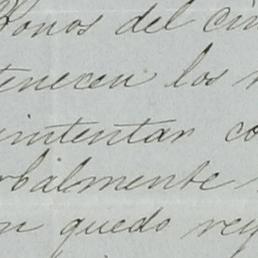 Bonos del cin
tenecen los
intentar co
rbalmente
n quedo rey